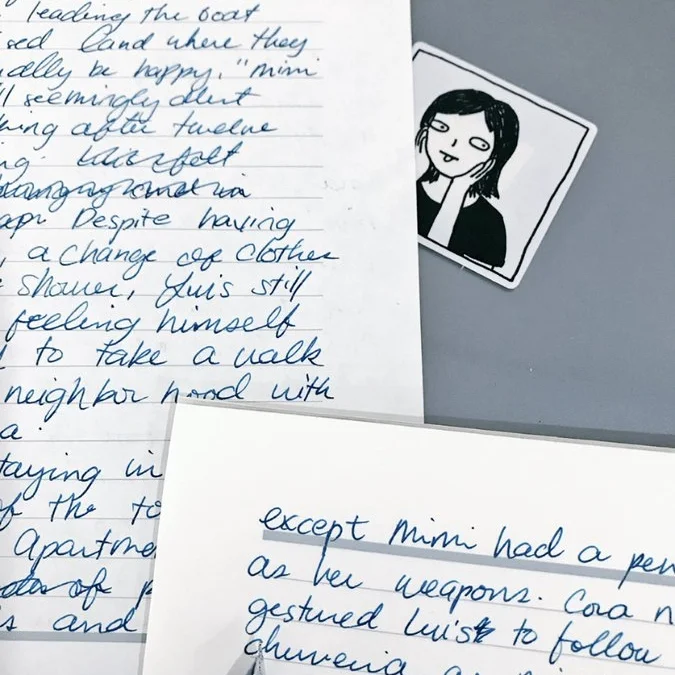 leading the boat
sed land where they
ally be happy." Mimi
ll seemingly alert
hing after twelve
ng. felt
Despite having
, a change of clothes
shower, Luis still
feeling himself
d to take a walk
neighbor hood with
a
taying in
of the to
Apartme
of p
s and
except Mimi had a pen
as her weapons. Cora n
gestured Luis to follow